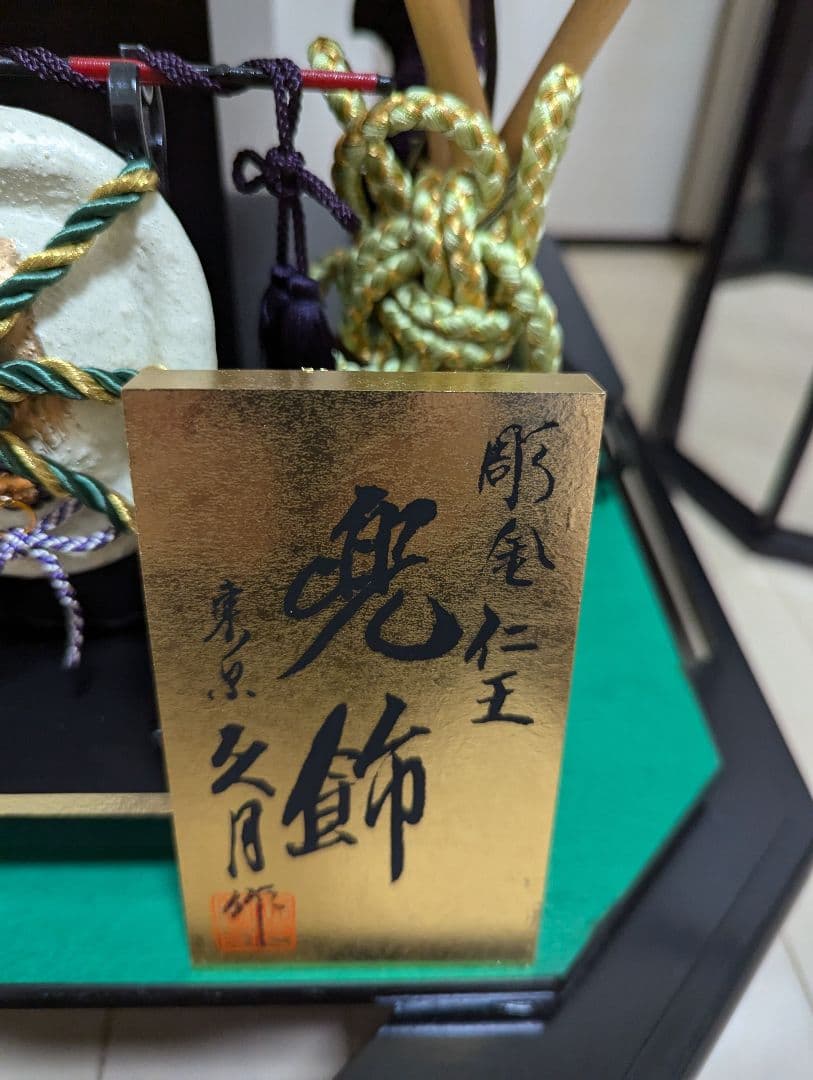 彫金 仁王
兜飾
東京 久月作